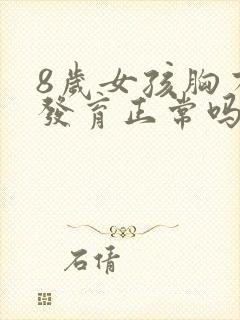 8歲女孩胸
發育正常吗
石倩